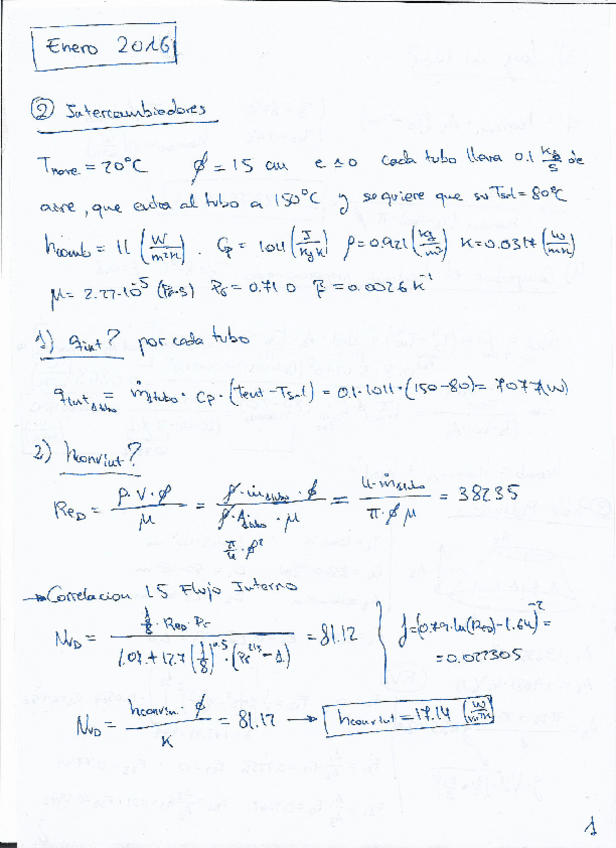 Enero 2016
② Intercambiadores
Tnave = 20°C ϕ = 15 cm e ≃ 0 cada tubo lleva 0.1 kg/s de
aire, que entra al tubo a 150°C y se quiere que su Tsal = 80°C
hcomb = 11 (W/m²K). Cp = 1011 (J/kg K) ρ = 0.921 (kg/m³) K = 0.0317 (W/mK)
μ = 2.27·10⁻⁵ (Pa·s) Pr = 0.710 β = 0.0026 K⁻¹
1) qint? por cada tubo
qint 1tubo = ṁ1tubo · Cp · (Tent - Tsal) = 0.1·1011·(150-80) = 7077 (W)
2) hconvint?
ReD = ρ·V·ϕ / μ = ρ·ṁ1tubo·ϕ / ρ·A1tubo·μ = 4·ṁ1tubo / π·ϕ μ = 38235
π/4·ϕ²
→ Correlacion 15 Flujo Interno
NuD = f/8 · ReD · Pr / 1.07+12.7 (f/8)^0.5 · (Pr^2/3 - 1) = 81.12 } f = (0.79·ln(ReD) - 1.64)⁻² =
= 0.022305
NuD = hconvin. · ϕ / K = 81.12 → hconvint = 17.14 (W/m²K)
1